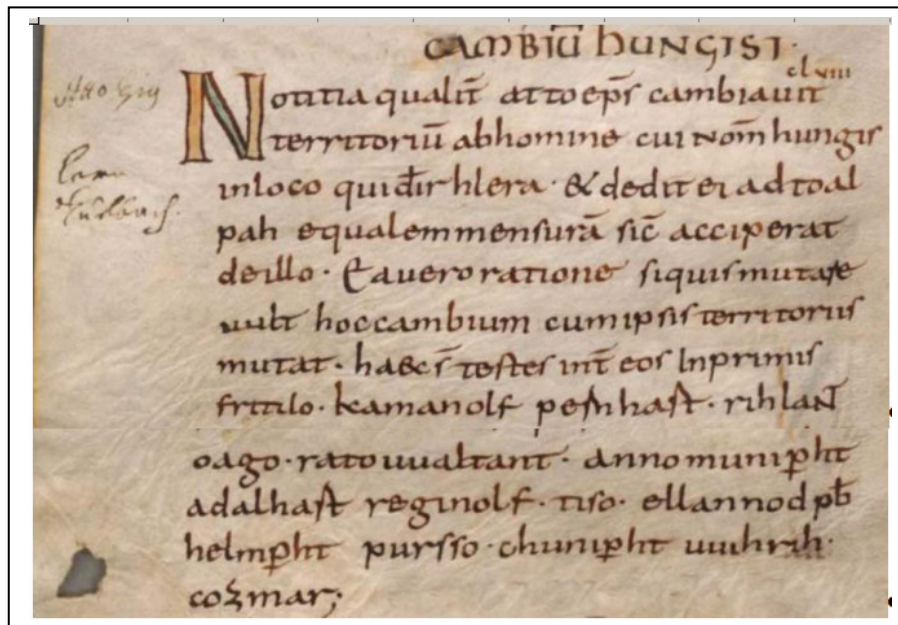 CAMBIŪ HUNGISI·
clviii
Notitia qualit̄ atto ep̄s cambiauit
territoriū abhomine cui nom̄ hungis
inloco qui dr̄ hlera· & dedit ei ad toal
pah equalem mensurā sic̄ acciperat
deillo· Ea uero ratione siquis mutare
uult hoc cambium cum ipsis territoriis
mutat· haec s̄ testes int̄ eos Inprimis
fritilo· kamanolf pefnhaft· rihlant
oago· rato uualtant· anno muniꝑht
adalhaft reginolf· tiso· ellannod pb̄
helmꝑht pursso· chuniꝑht uuihrih·
cozmar;